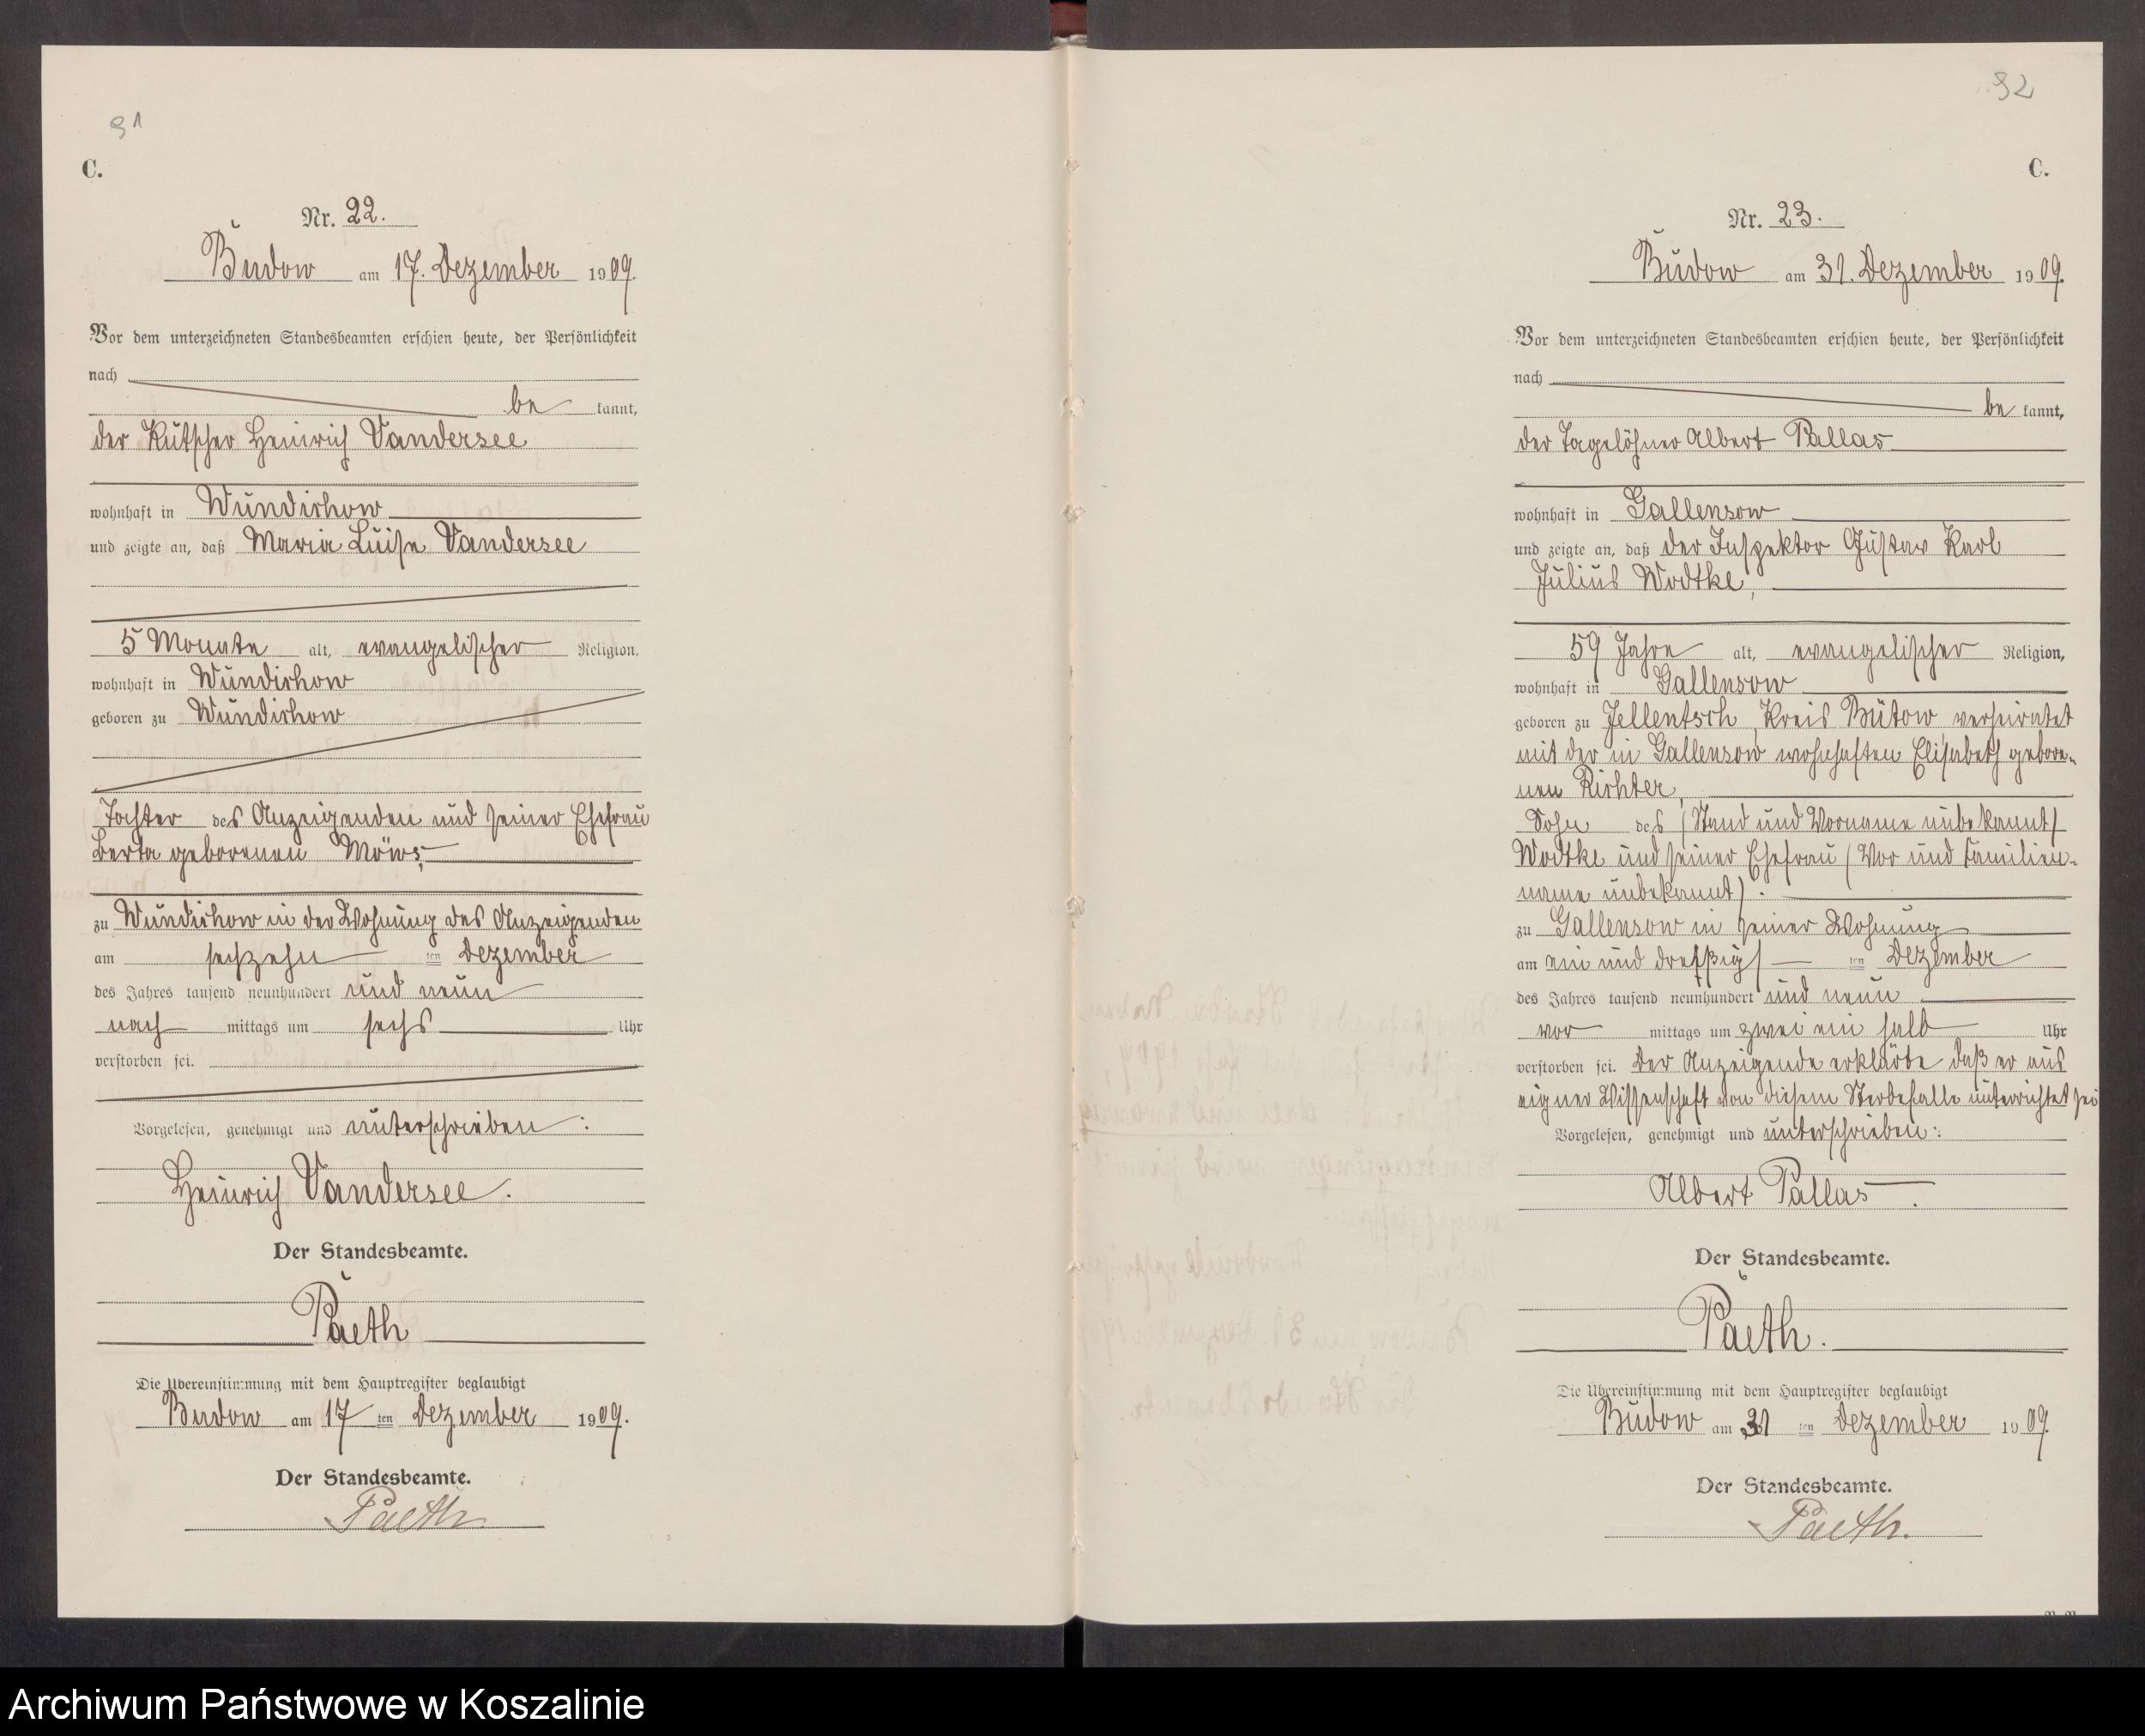 91
C.
Nr. 22.
Budow am 17. Dezember 1909.
Vor dem unterzeichneten Standesbeamten erschien heute, der Persönlichkeit
nach
be kannt,
der Kutscher Heinrich Vandersee
wohnhaft in Wundichow
und zeigte an, daß Maria Luise Vandersee
5 Monate alt, evangelischer Religion,
wohnhaft in Wundichow
geboren zu Wundichow
Tochter des Anzeigenden und seiner Ehefrau
Berta geborenen Möws,
zu Wundichow in der Wohnung des Anzeigenden
am sechzehn ten Dezember
des Jahres tausend neunhundert und neun
nach mittags um sechs Uhr
verstorben sei.
Vorgelesen, genehmigt und unterschrieben:
Heinrich Vandersee.
Der Standesbeamte.
Paeth
Die Übereinstimmung mit dem Hauptregister beglaubigt
Budow am 17 ten Dezember 1909.
Der Standesbeamte.
Paeth
92
C.
Nr. 23.
Budow am 31. Dezember 1909.
Vor dem unterzeichneten Standesbeamten erschien heute, der Persönlichkeit
nach
be kannt,
der Tagelöhner Albert Pallas
wohnhaft in Gallensow
und zeigte an, daß der Inspektor Gustav Karl
Julius Wodtke,
59 Jahre alt, evangelischer Religion,
wohnhaft in Gallensow
geboren zu Jellentsch, Kreis Bütow verheiratet
mit der in Gallensow wohnhaften Elisabeth gebore-
nen Richter,
Sohn des (Stand und Vorname unbekannt)
Wodtke und seiner Ehefrau (Vor und Familien-
name unbekannt).
zu Gallensow in seiner Wohnung
am ein und dreißigs ten Dezember
des Jahres tausend neunhundert und neun
vor mittags um zwei ein halb Uhr
verstorben sei. Der Anzeigende erklärte daß er aus
eigner Wissenschaft von diesem Sterbefalle unterrichtet sei
Vorgelesen, genehmigt und unterschrieben:
Albert Pallas.
Der Standesbeamte.
Paeth.
Die Übereinstimmung mit dem Hauptregister beglaubigt
Budow am 31 ten Dezember 1909.
Der Standesbeamte.
Paeth.
Archiwum Państwowe w Koszalinie